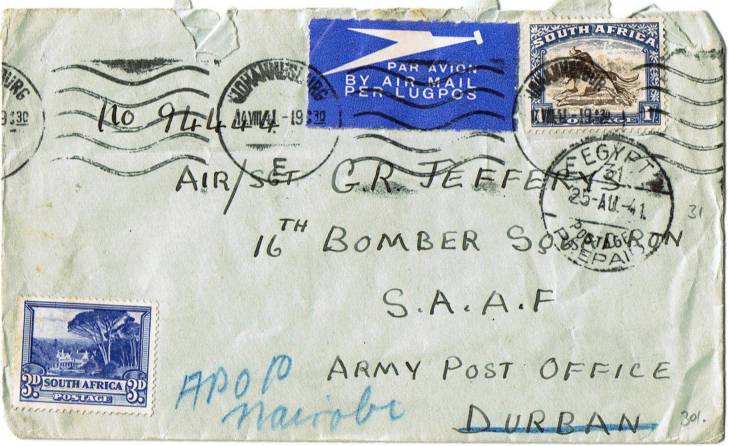 PAR AVION
BY AIR MAIL
PER LUGPOS
SOUTH AFRICA
1/-
JOHANNESBURG
E
No 94444
EGYPT
31
25-AU.-41
POSTAGE
PREPAID
31
AIR/SGT G.R. JEFFERYS
16TH BOMBER SQUADRON
S.A.A.F
ARMY POST OFFICE
DURBAN
301.
A.P.O
Nairobi
3D SOUTH AFRICA 3D
POSTAGE